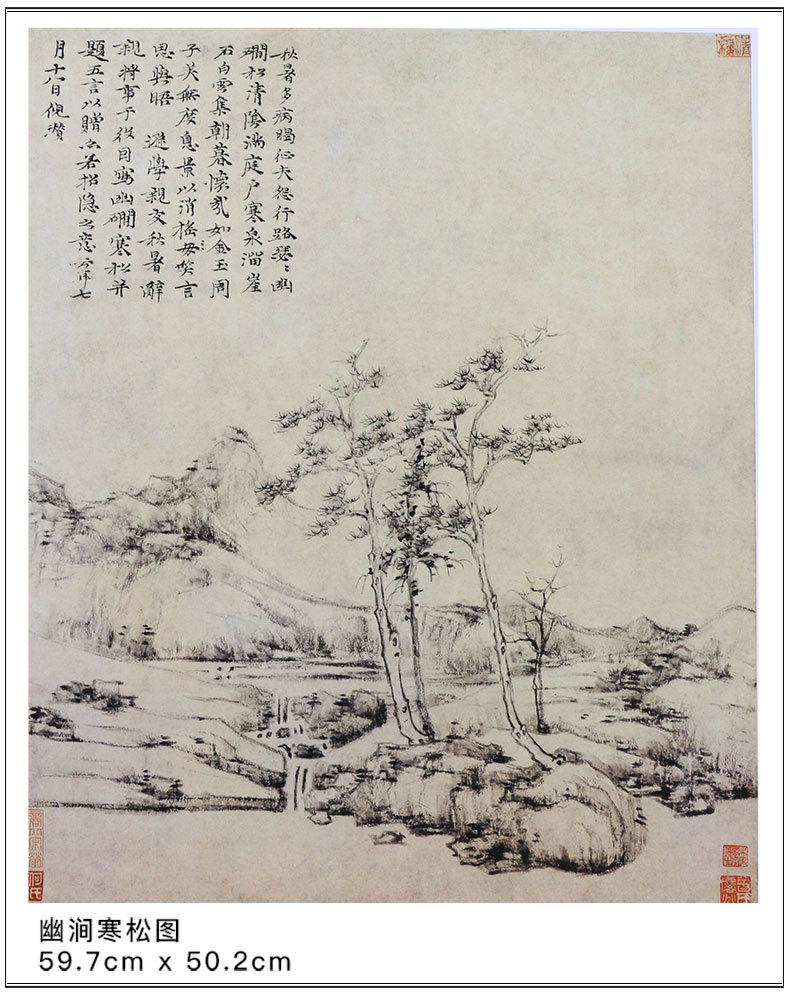 秋暑多病暍征夫怨行路瑟〻幽
磵松清陰滿庭戶寒泉溜崖
石白雲集朝暮懷哉如金玉周
子美無度息景以消搖笑言
思與晤 遜學親友秋暑辭
親將事于役因寫幽磵寒松并
題五言以贈亦若招隱之意云耳七
月十八日倪瓚
幽涧寒松图
59.7cm x 50.2cm